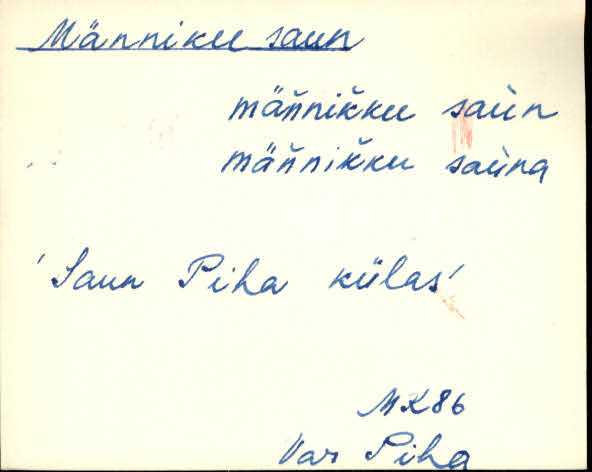 Männiku saun
män̆nik̆ku saùn
män̆nik̆ku saùna
'Saun Piha külas'
MK86
Var Piha